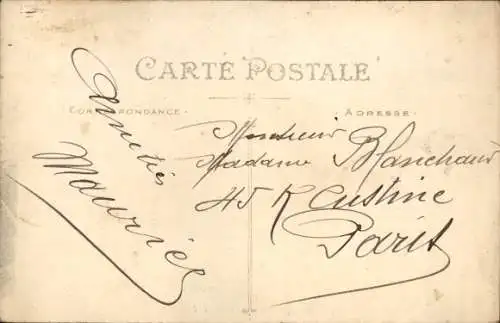 CARTE POSTALE
CORRESPONDANCE
ADRESSE
Amitiés
Maurice
Monsieur
Madame Blanchard
45 R Custine
Paris